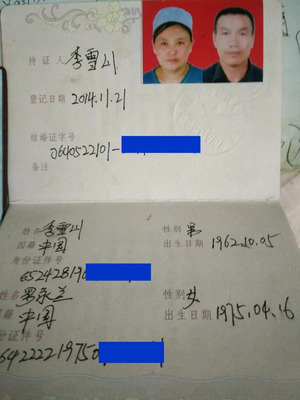 持证人 李雪山
登记日期 2014.11.21
结婚证字号
J640522101-
备注
姓名 李雪山 性别 男
国籍 中国 出生日期 1962.10.05
身份证件号
652428196
姓名 罗永兰 性别 女
籍 中国 出生日期 1975.04.16
份证件号
64222219750